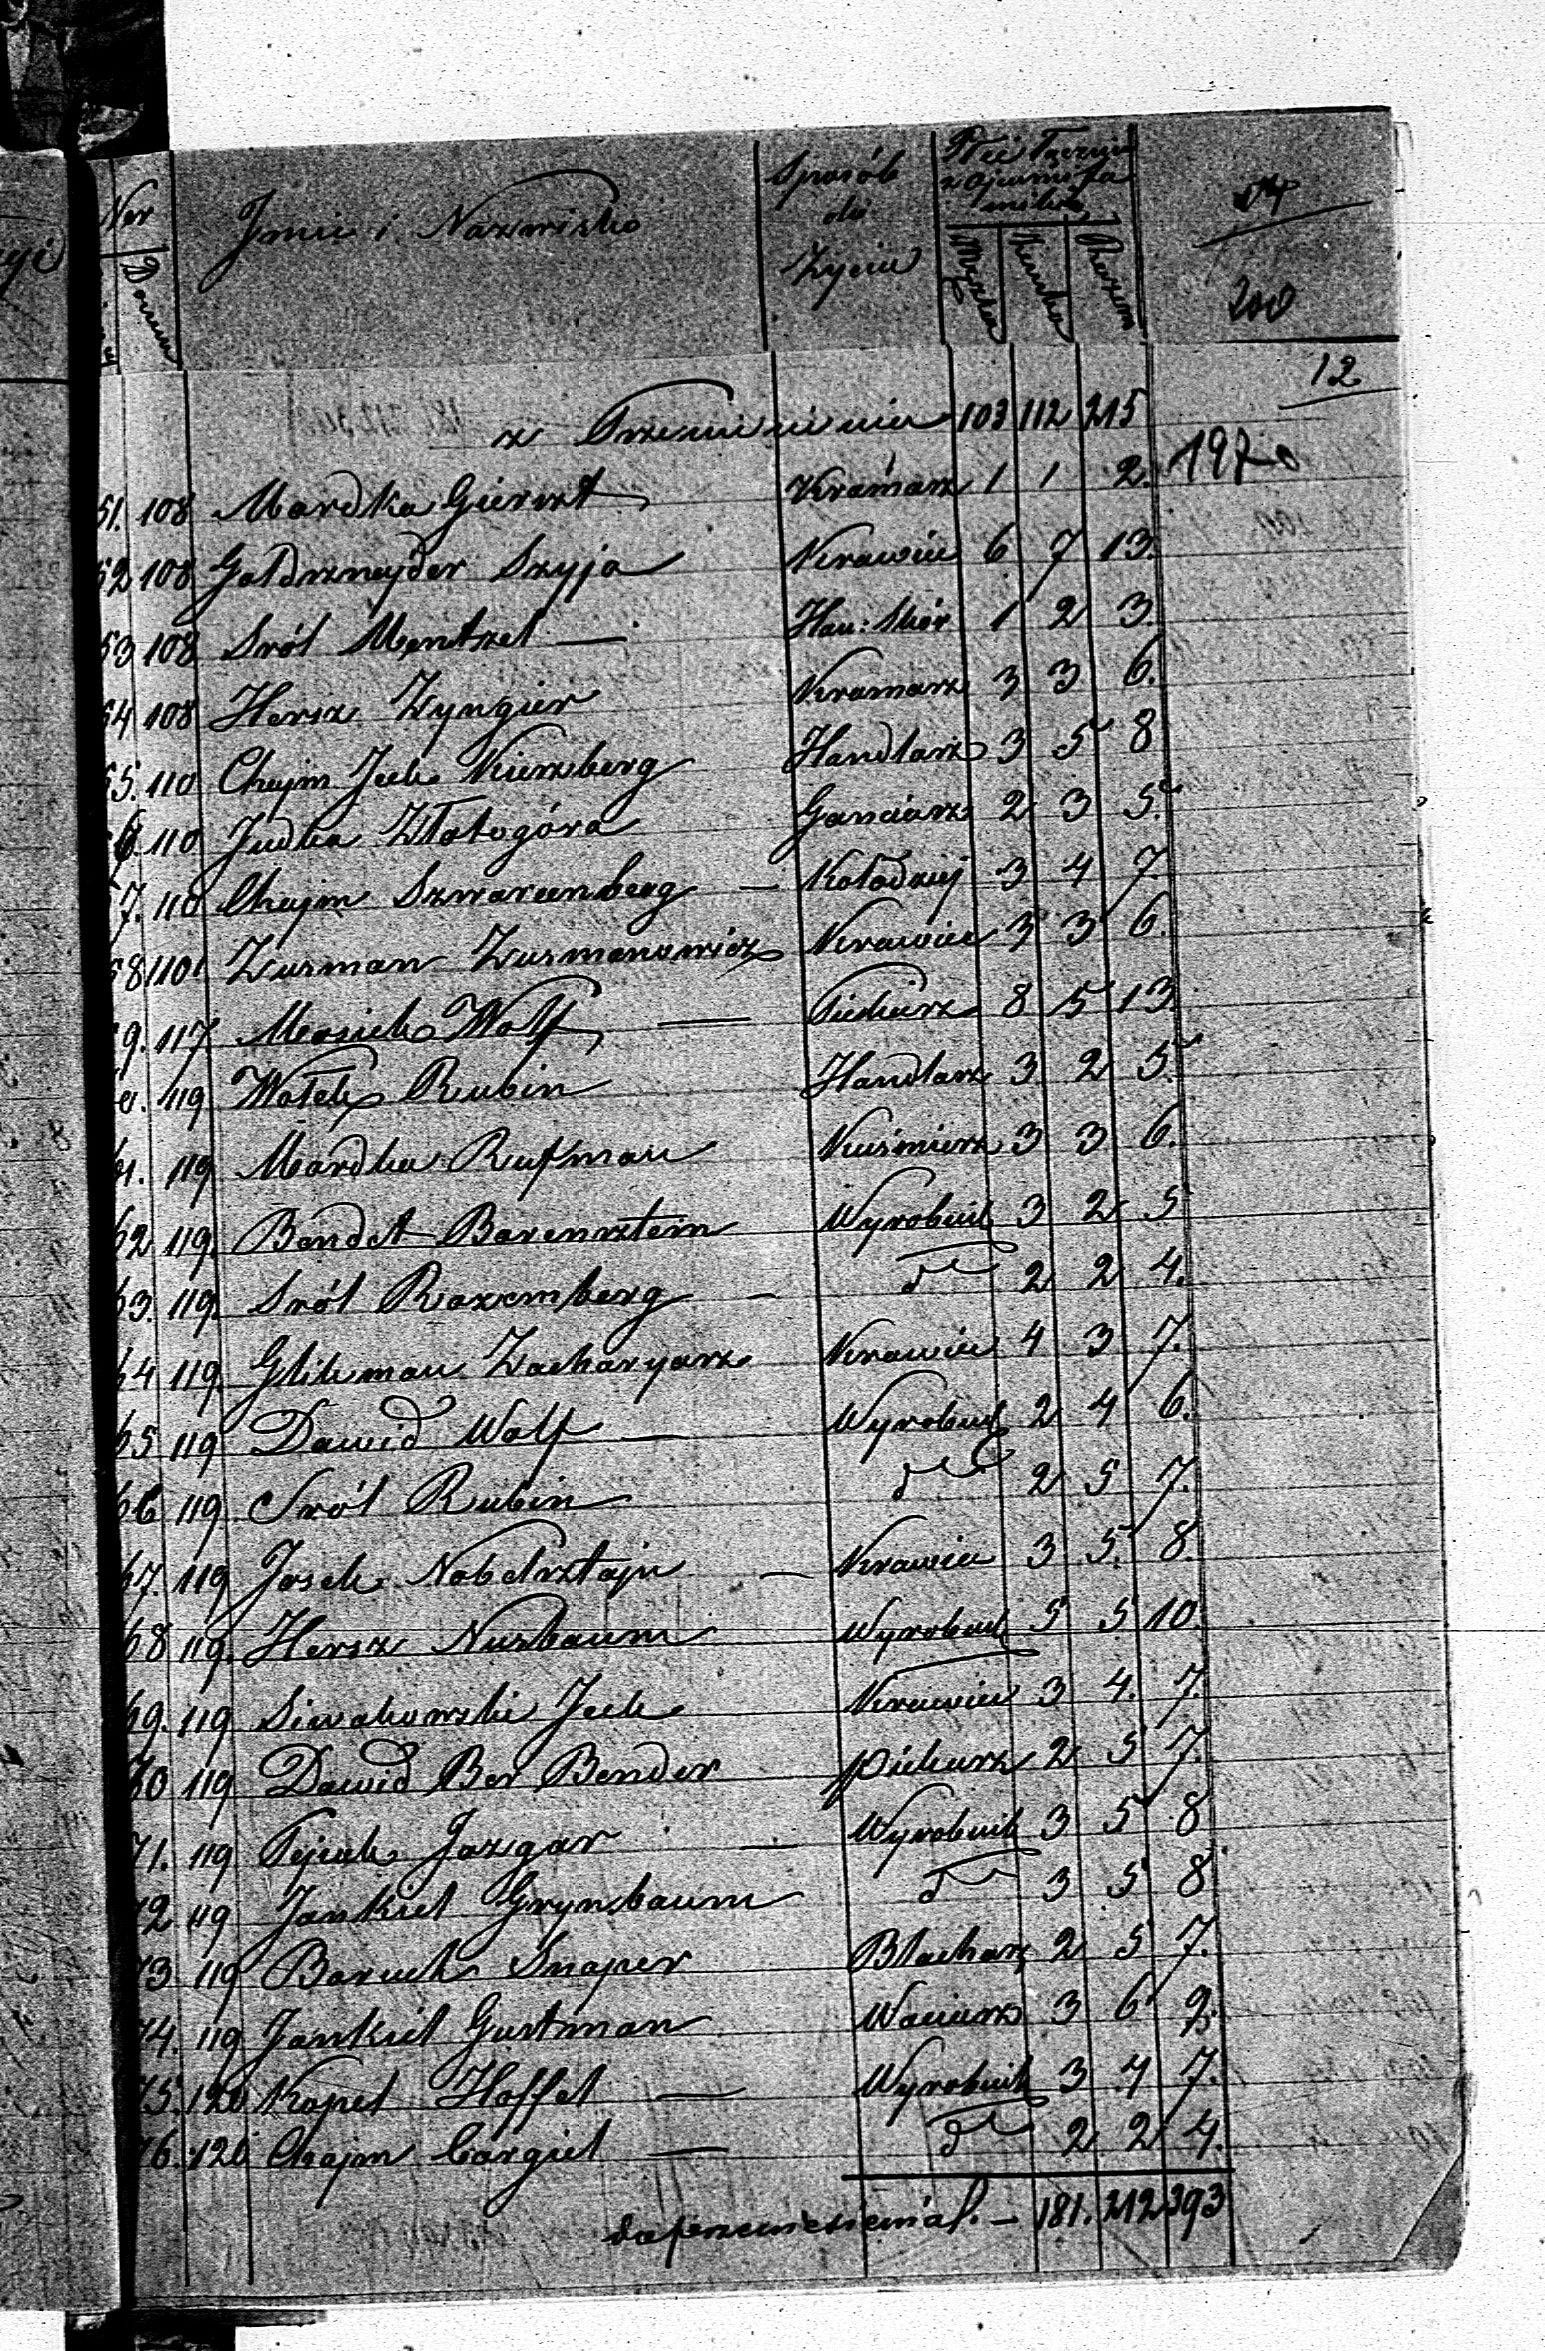 Ner
Domu
Imie i Nazwisko
Sposób
do
Życia
Płeć Łącznie
z ojcami fa
milii
Męzka
Żeńska
Razem
200
12
z Przeniesienia 103 112 215
197
51. 108 Mardka Gierszt Kramarz 1 1 2.
52 108 Goldszneyder Szyja Krawiec 6 7 13.
53 108 Sról Mentzel — Han: Skór 1 2 3.
54 108 Hersz Zyngier Kramarz 3 3 6.
55. 110 Chajm Icek Kierzberg Handlarz 3 5 8
56. 110 Judka Złotogóra Garncarz 2 3 5.
57. 110 Chajm Szwarcenberg — Kołodziej 3 4 7.
58 110 Zusman Zusmanowicz Krawiec 3 3 6.
59. 117. Mosiek Wolf — Piekarz 8 5 13.
119 Wolek Rubin Handlarz 3 2 5.
61. 119 Mardka Rufman Kuśmierz 3 3 6.
62 119. Bendet Borensztein Wyrobnik 3 2 5
63. 119. Sról Rozemberg — do 2 2 4.
64 119. Glikman Zacharyasz Krawiec 4 3 7.
65 119 Dawid Wolf — Wyrobnik 2 4 6.
66 119 Sról Rubin do 2 5 7.
67. 119 Josek Nobelsztajn — Krawiec 3 5. 8.
68 119. Hersz Nusbaum Wyrobnik 5 5 10.
69. 119 Siwakowski Icek Krawiec 3 4. 7.
70 119 Dawid Ber Bender piekarz 2 5 7.
71. 119 Pejsak Jazgar — Wyrobnik 3 5 8
72 119 Jankiel Grynsbaum do 3 5 8
73 119 Boruch Snaper Blacharz 2 5 7.
74. 119 Jankiel Gustman 3 6 9.
75. 120 Kopel Hoffel — Wyrobnik 3 4 7.
76. 120 Chajm Cargiel — do 2 2 4.
do przeniesienia. — 181. 212 393